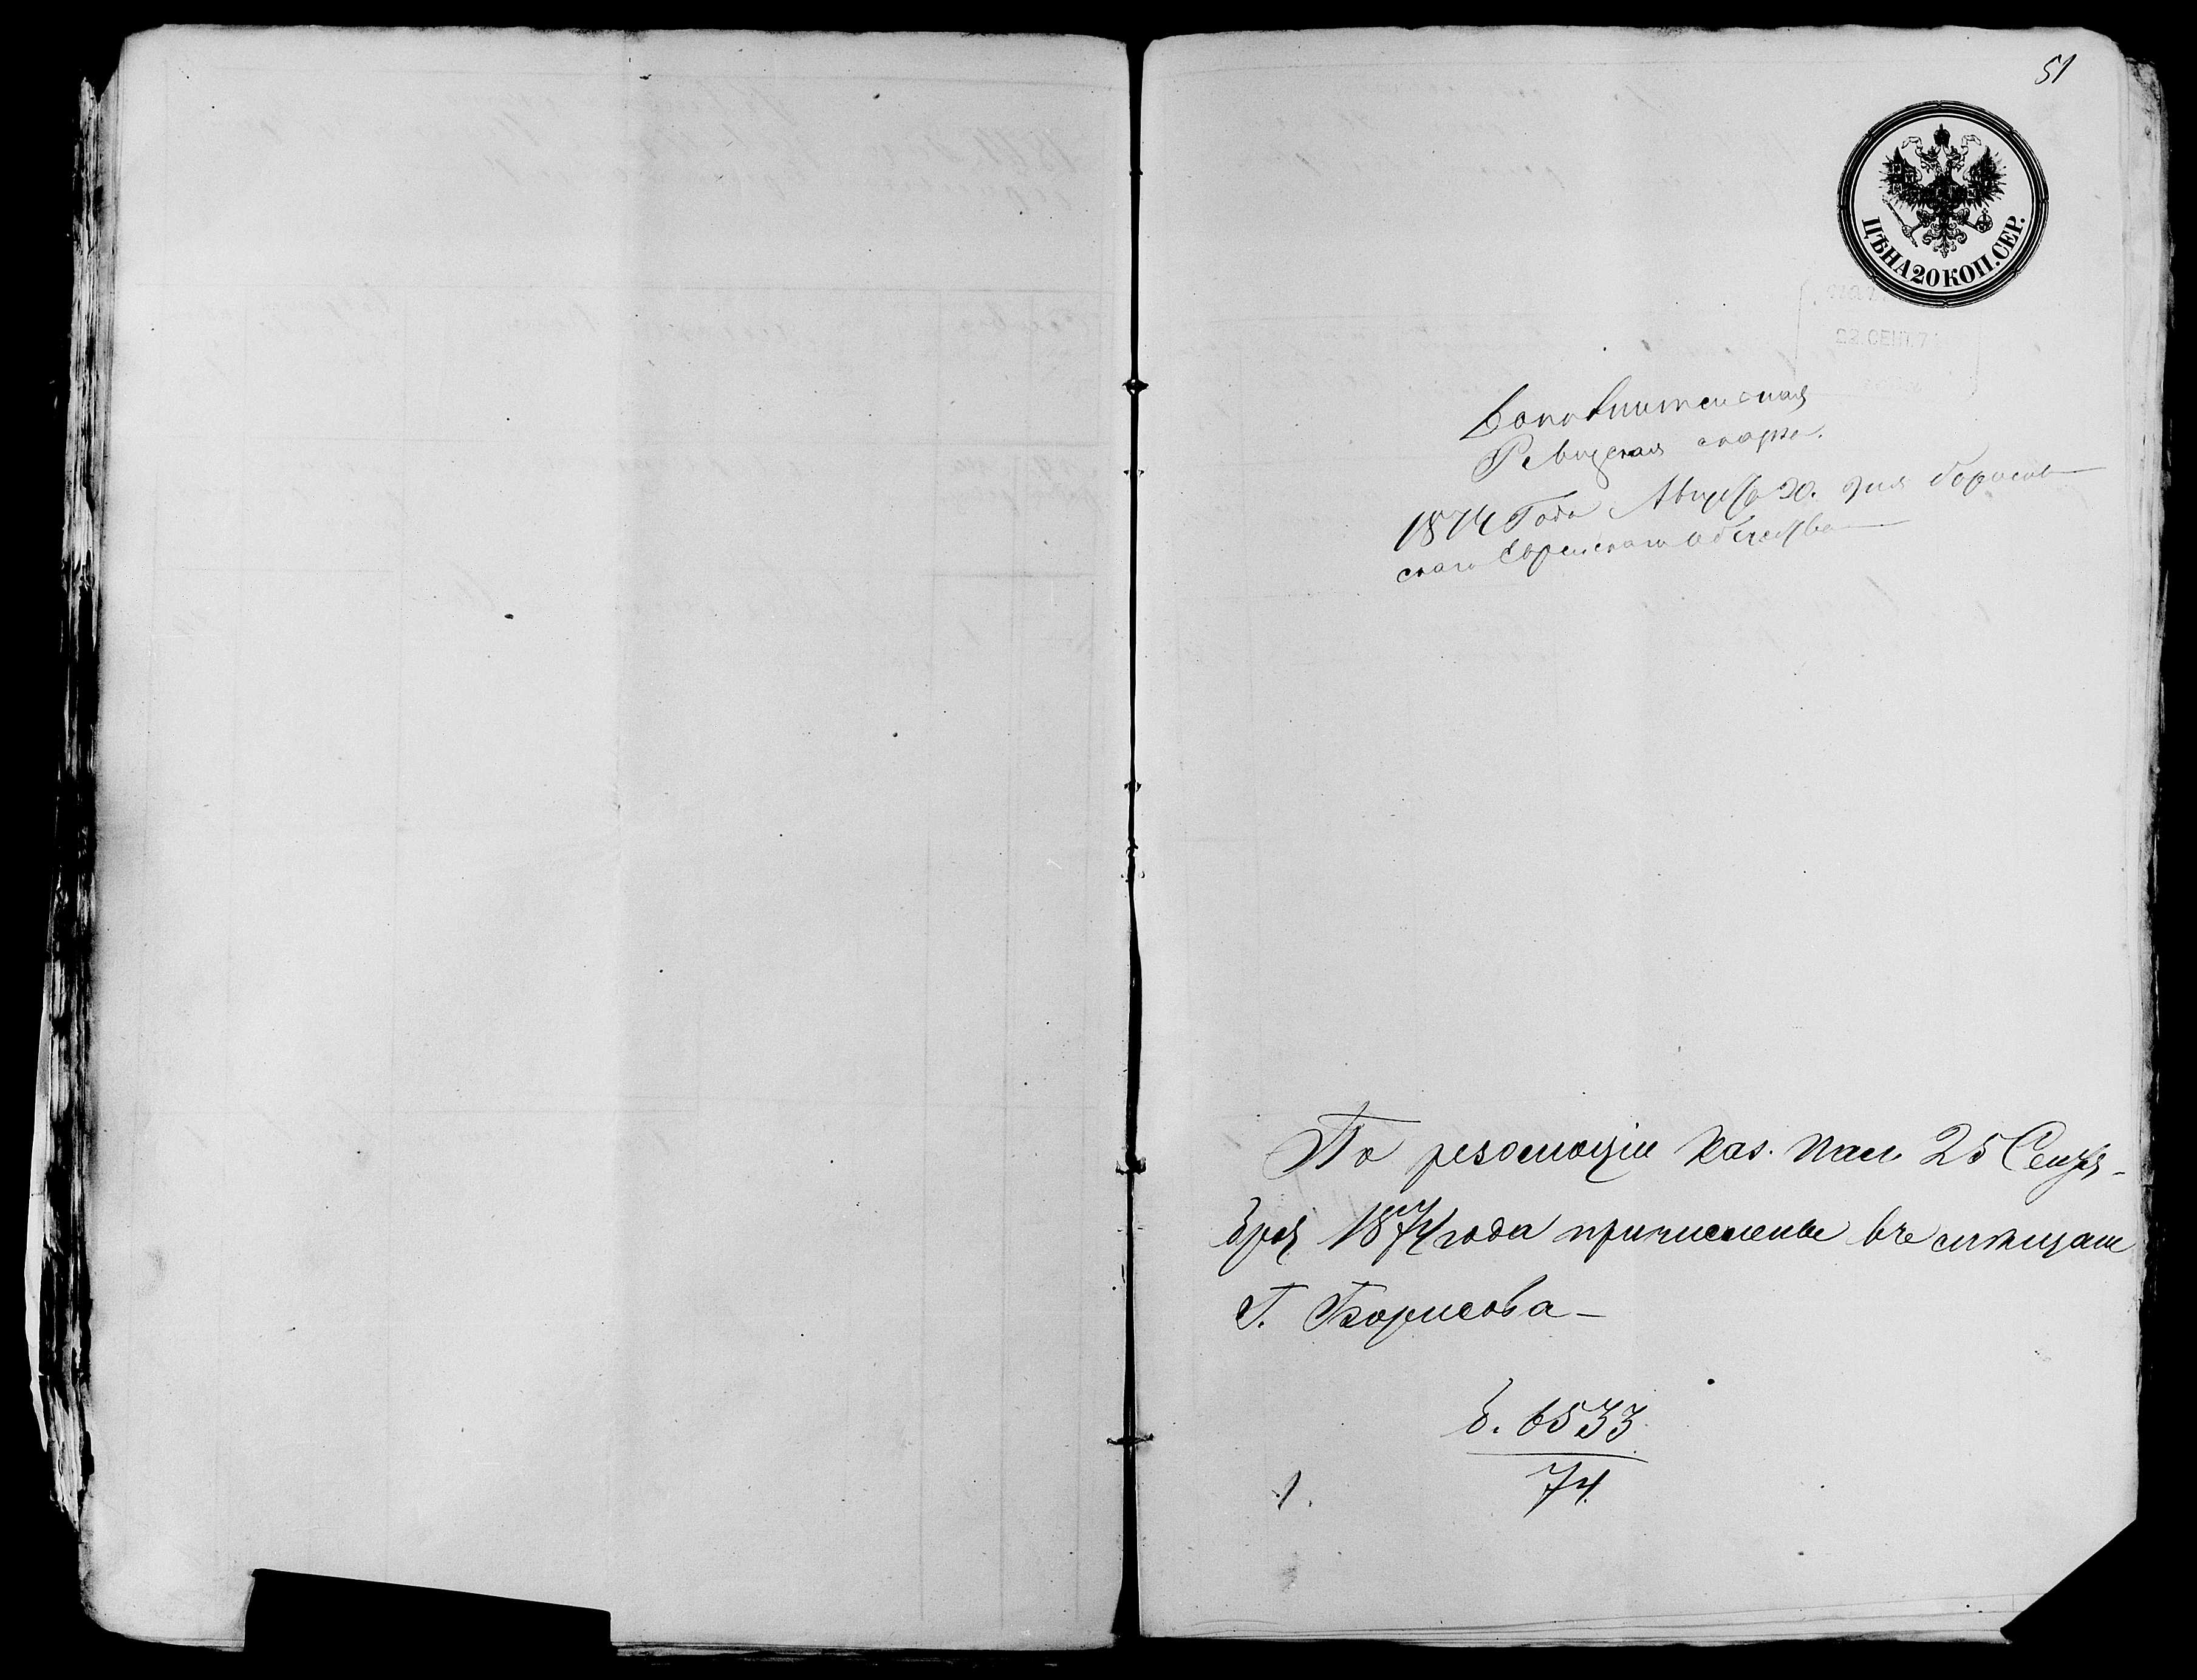 51
ЦѢНА 20 КОП. СЕР.
22 СЕНТ. 7
Дополнительная
Ревизская сказка.
1874 Года Августа 20. дня Борисов
скаго Еврейскаго Общества
По резолюціи Каз. Пал. 25 Сентя-
бря 1874 года причислены въ мѣщане
Г. Борисова —
6533
74.
1.